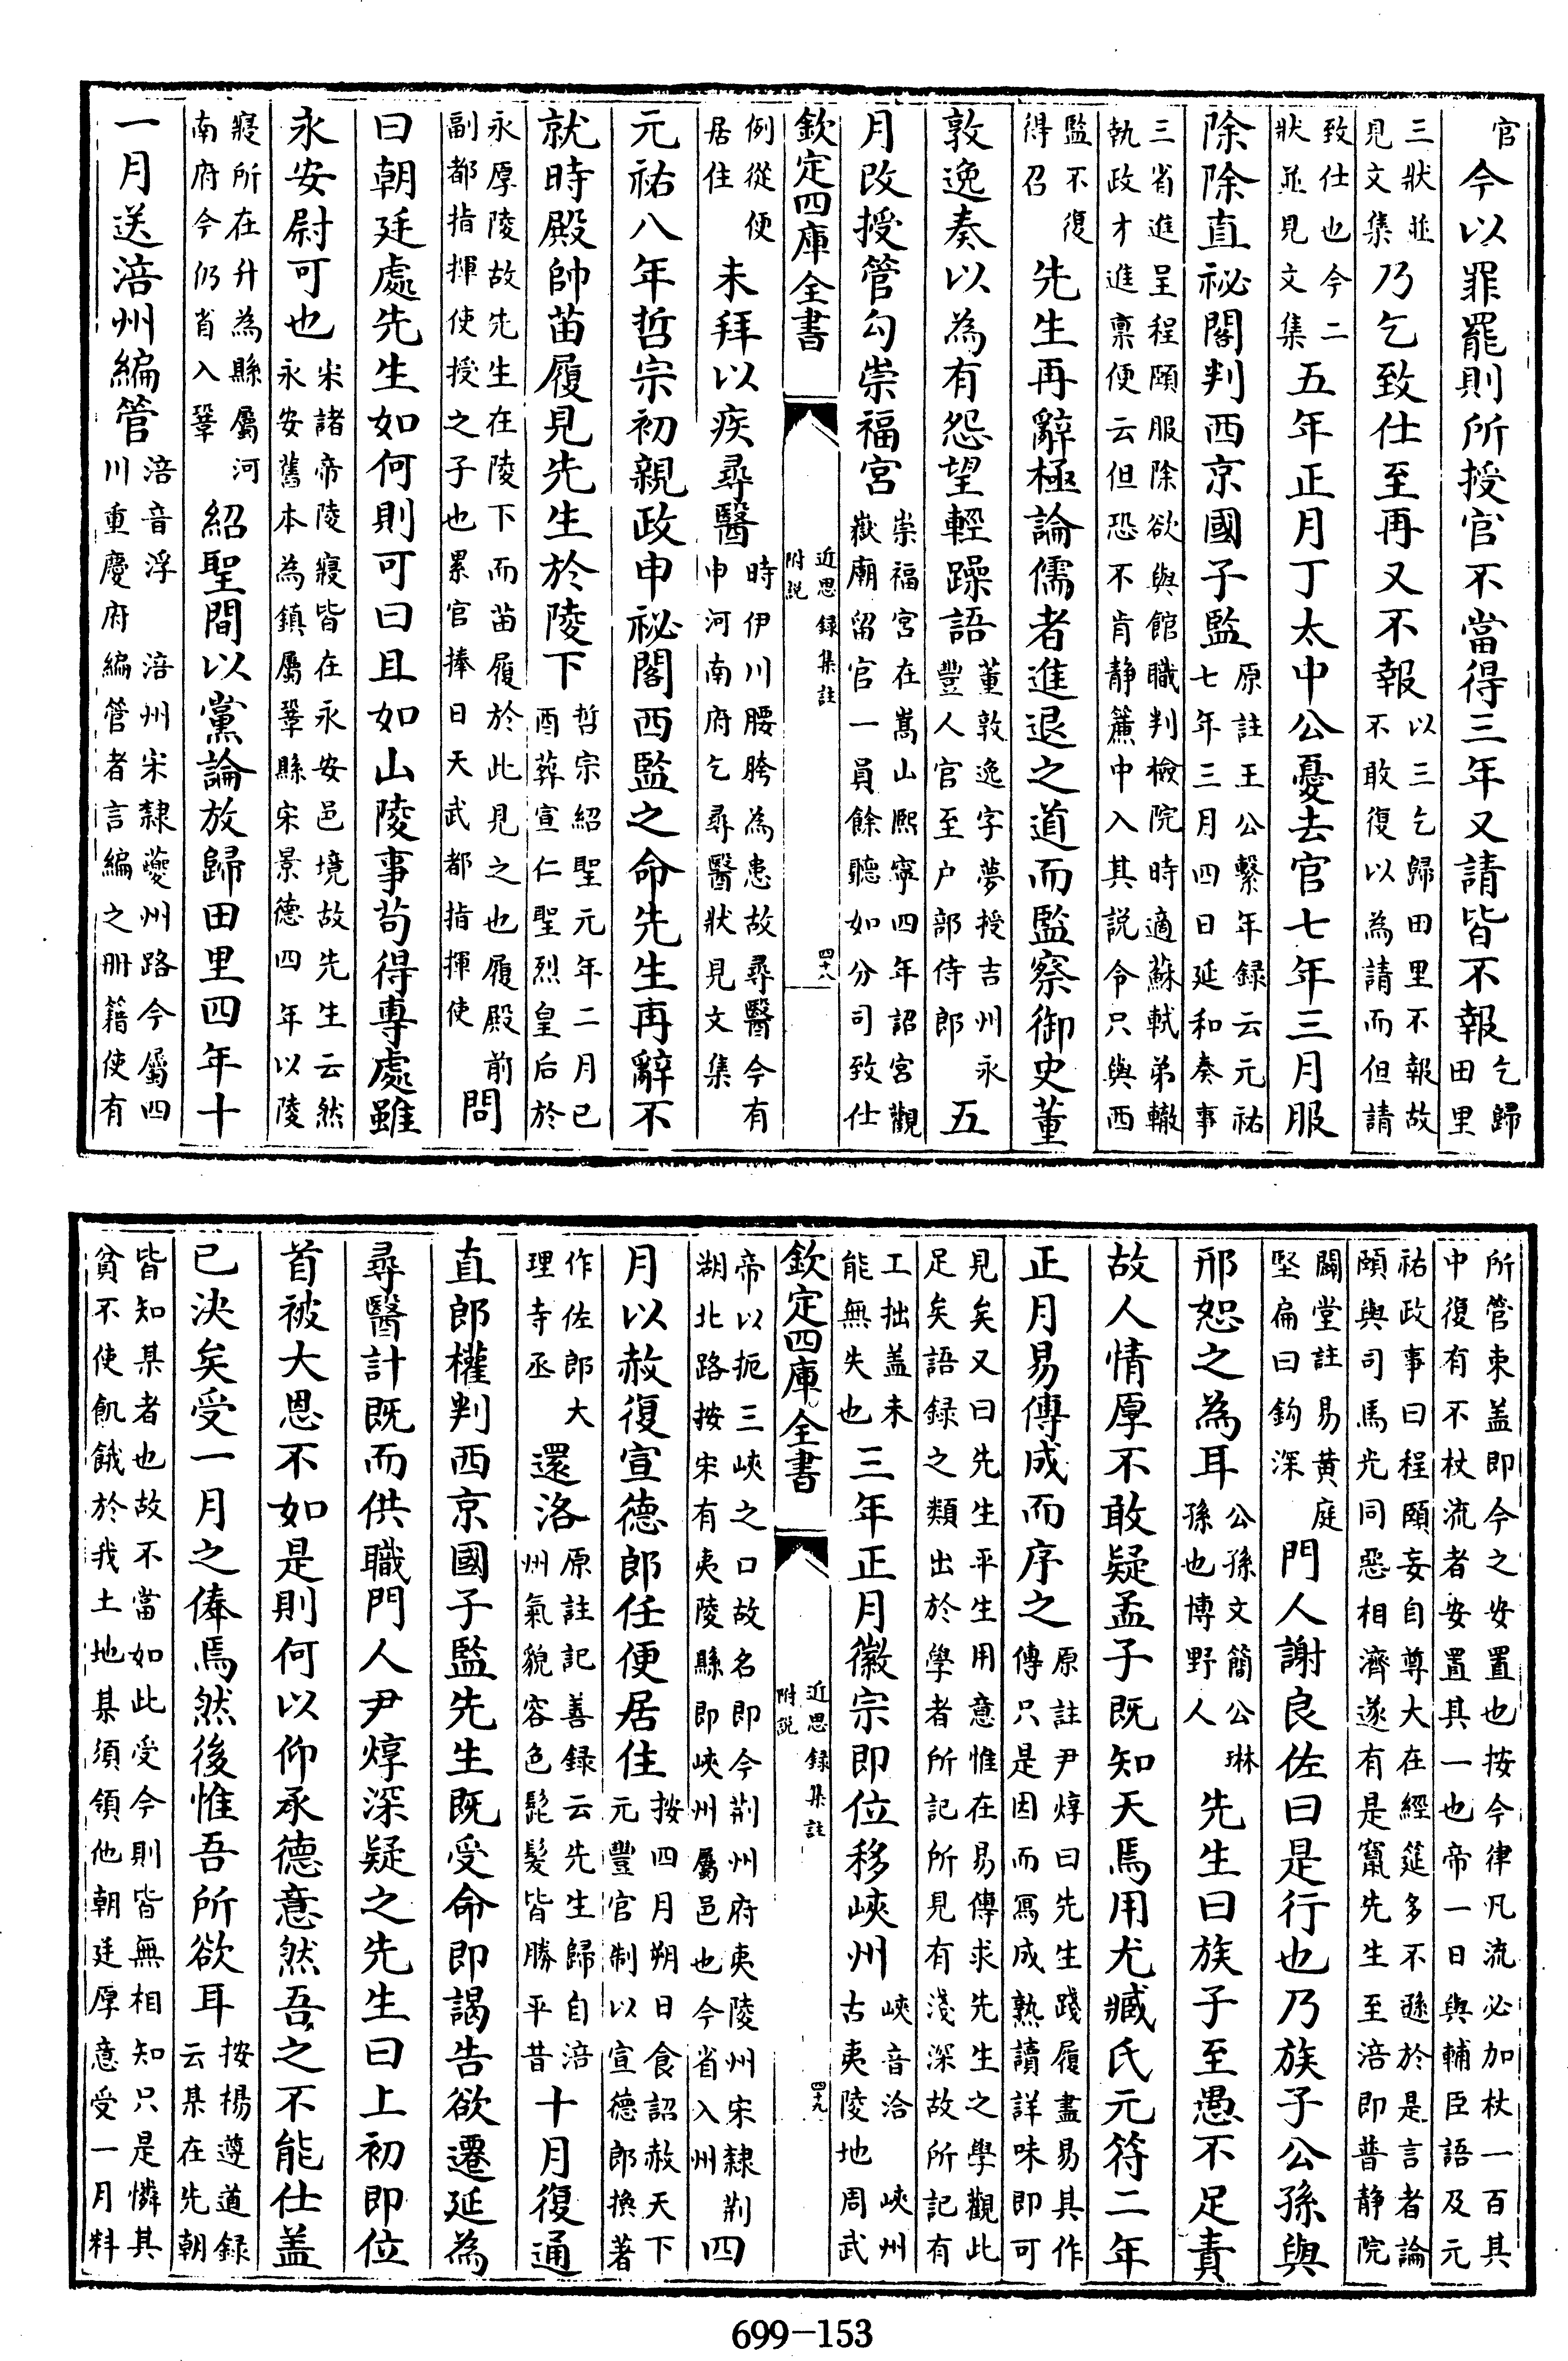 官今以罪罷則所授官不當得三年又請皆不報乞歸田里
三狀並見文集乃乞致仕至再又不報以三乞歸田里不報故不敢復以為請而但請
致仕也今二狀並見文集五年正月丁太中公憂去官七年三月服
除除直祕閣判西京國子監原註王公繫年録云元祐七年三月四日延和奏事
三省進呈程頤服除欲與館職判檢院時適蘇軾弟轍執政才進禀便云但恐不肯静簾中入其説令只與西
監不復得召先生再辭極論儒者進退之道而監察御史董
敦逸奏以為有怨望輕躁語董敦逸字夢授吉州永豐人官至户部侍郎五
月改授管勾崇福宮崇福宮在嵩山熙寧四年詔宮觀嶽廟留官一員餘聽如分司致仕
欽定四庫全書 近思録集註 附説 四十八
例從便居住未拜以疾尋醫時伊川腰胯為患故尋醫今有申河南府乞尋醫狀見文集
元祐八年哲宗初親政申祕閣西監之命先生再辭不
就時殿帥苗履見先生於陵下哲宗紹聖元年二月已酉葬宣仁聖烈皇后於
永厚陵故先生在陵下而苗履於此見之也履殿前副都指揮使授之子也累官捧日天武都指揮使問
曰朝廷處先生如何則可曰且如山陵事苟得專處雖
永安尉可也宋諸帝陵寢皆在永安邑境故先生云然永安舊本為鎮屬鞏縣宋景德四年以陵
寢所在升為縣屬河南府今仍省入鞏紹聖間以黨論放歸田里四年十
一月送涪州編管涪音浮 涪州宋隸夔州路今屬四川重慶府 編管者言編之冊籍使有
所管束盖即今之安置也按今律凡流必加杖一百其中復有不杖流者安置其一也帝一日與輔臣語及元
祐政事曰程頤妄自尊大在經筵多不遜於是言者論頤與司馬光同惡相濟遂有是竄先生至涪即普静院
闢堂註易黃庭堅扁曰鈎深門人謝良佐曰是行也乃族子公孫與
邢恕之為耳公孫文簡公琳孫也博野人先生曰族子至愚不足責
故人情厚不敢疑孟子既知天焉用尤臧氏元符二年
正月易傳成而序之原註尹焞曰先生踐履盡易其作傳只是因而寫成熟讀詳味即可
見矣又曰先生平生用意惟在易傳求先生之學觀此足矣語録之類出於學者所記所見有淺深故所記有
工拙盖未能無失也三年正月徽宗即位移峽州峽音洽 峽州古夷陵地周武
欽定四庫全書 近思録集註 附説 四十九
帝以扼三峽之口故名即今荆州府夷陵州宋隸荆湖北路按宋有夷陵縣即峽州屬邑也今省入州四
月以赦復宣德郎任便居住按四月朔日食詔赦天下元豐官制以宣德郎換著
作佐郎大理寺丞還洛原註記善録云先生歸自涪州氣貌容色髭髮皆勝平昔十月復通
直郎權判西京國子監先生既受命即謁告欲遷延為
尋醫計既而供職門人尹焞深疑之先生曰上初即位
首被大恩不如是則何以仰承德意然吾之不能仕盖
已決矣受一月之俸焉然後惟吾所欲耳按楊遵道録云某在先朝
皆知某者也故不當如此受今則皆無相知只是憐其貧不使飢餓於我土地某須領他朝廷厚意受一月料
699-153